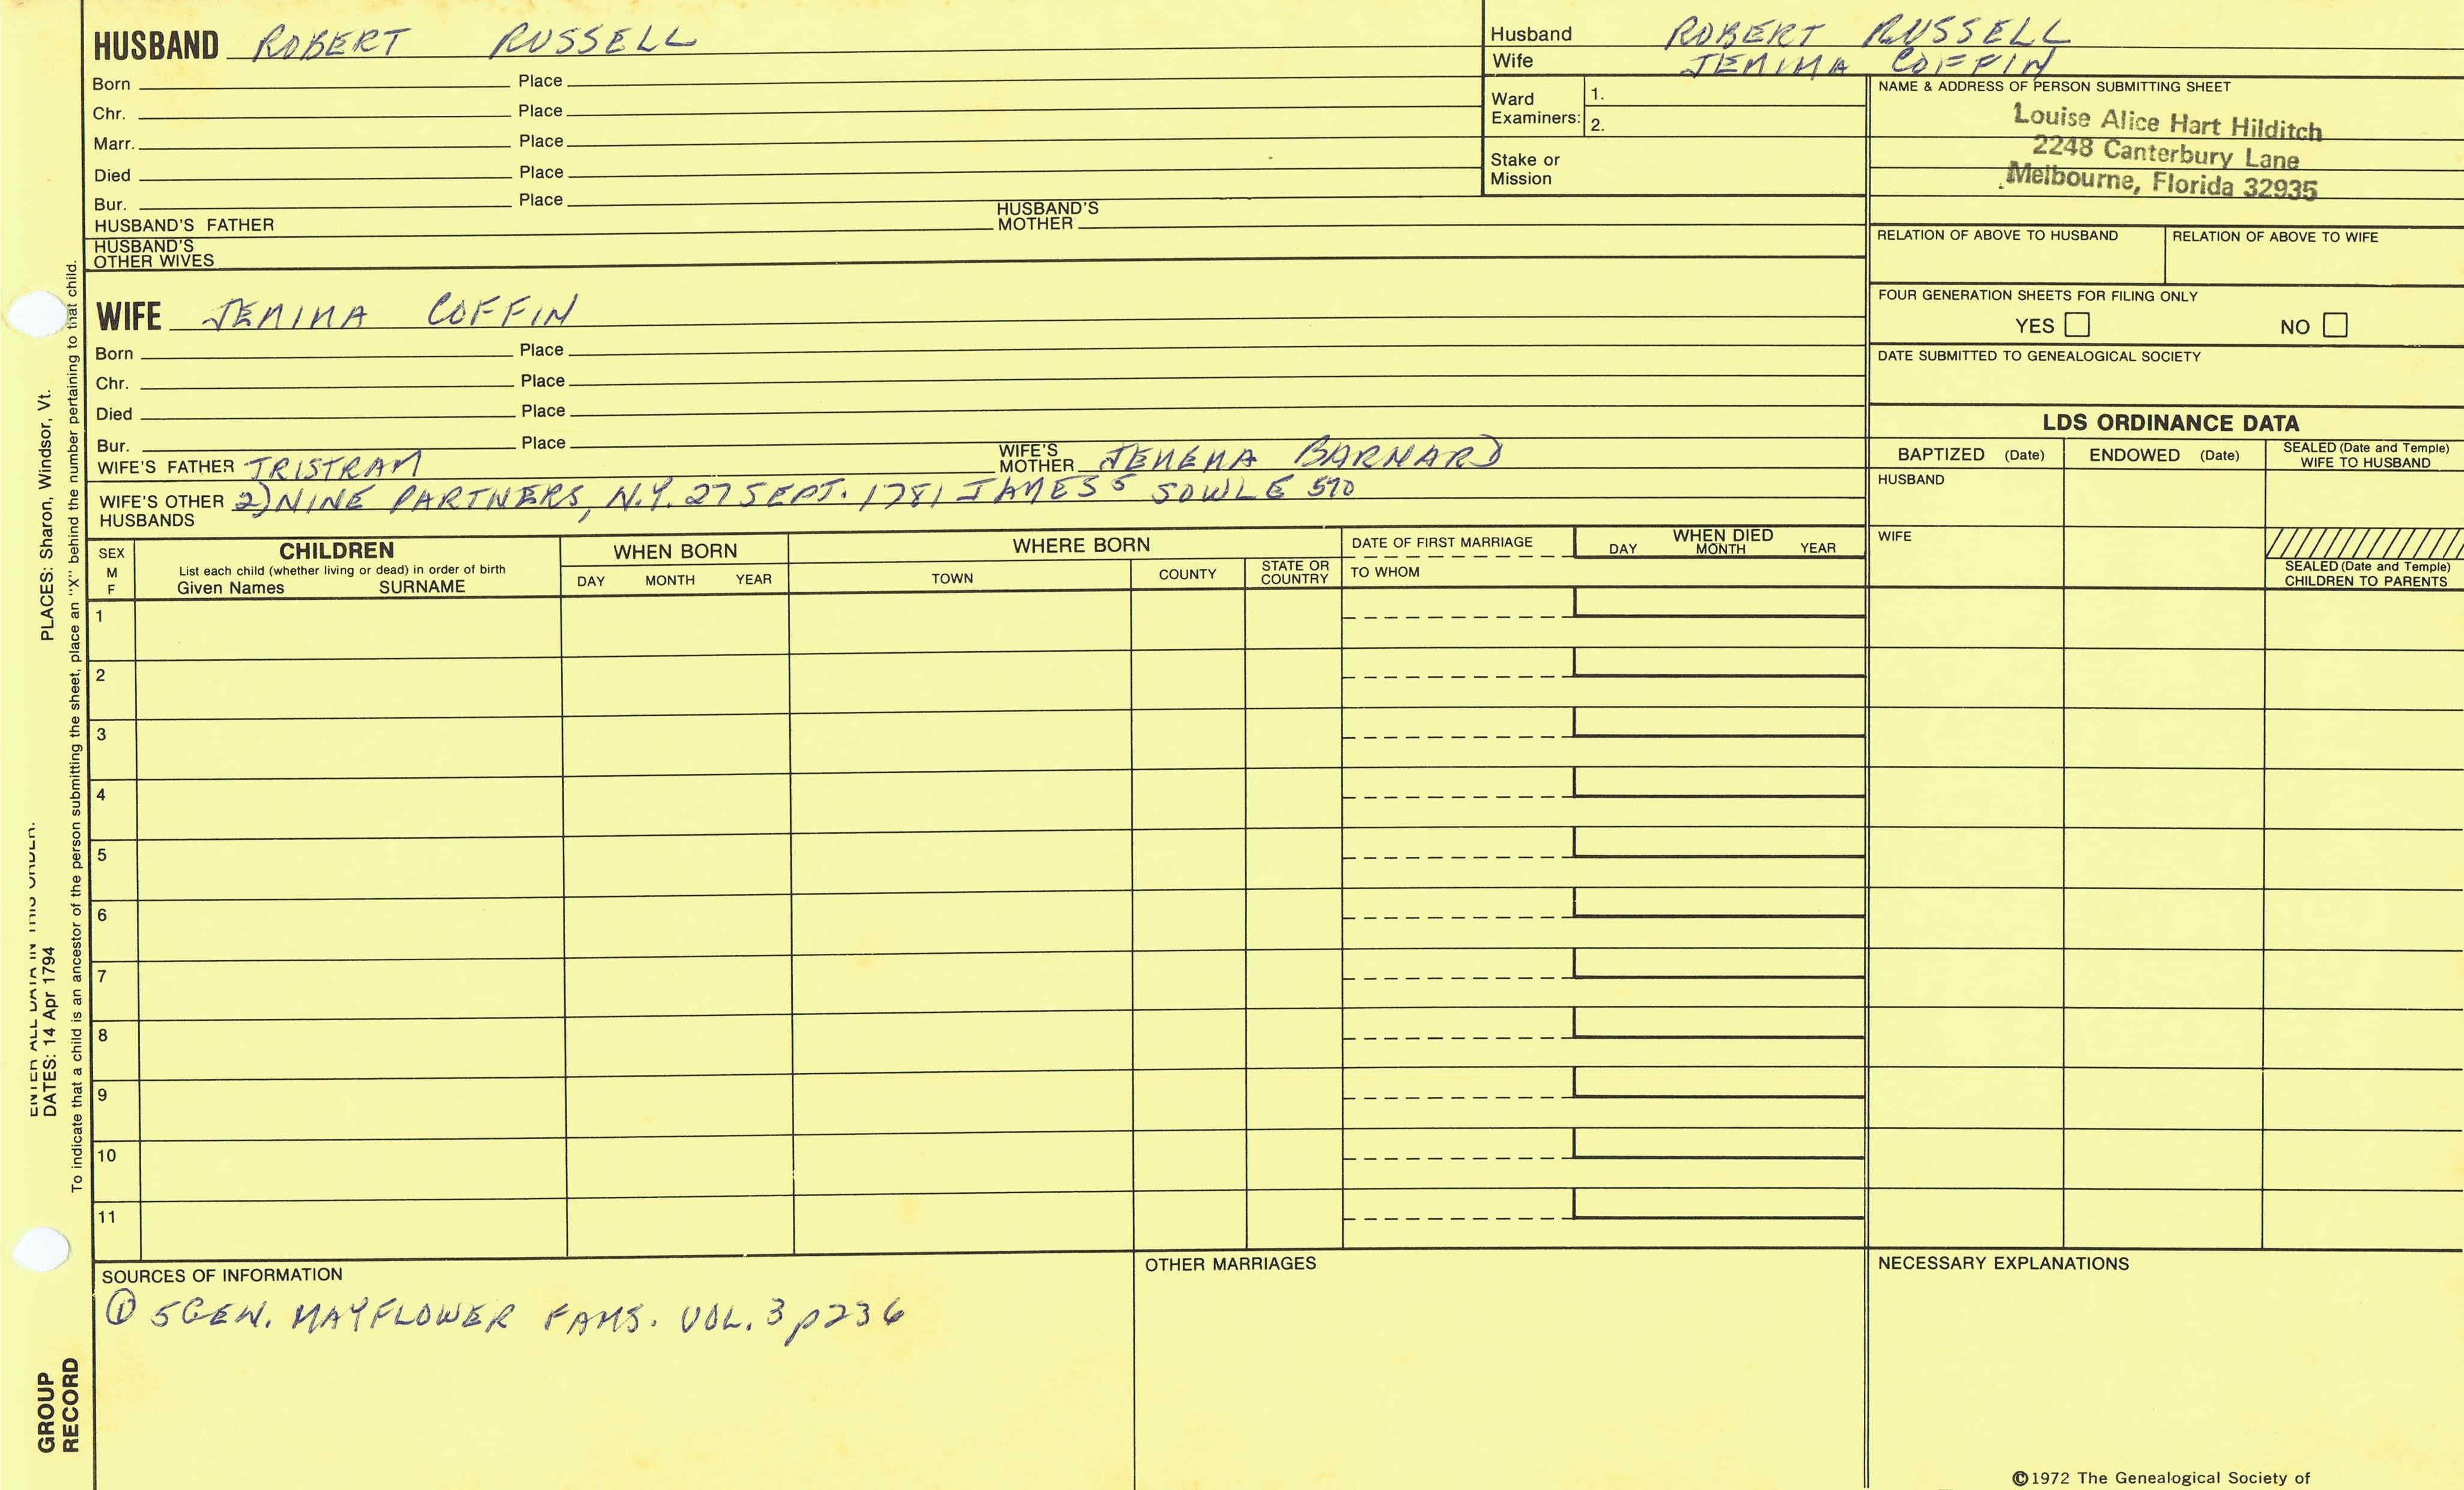 HUSBAND ROBERT RUSSELL
Born Place
Chr. Place
Marr. Place
Died Place
Bur. Place
HUSBAND'S FATHER HUSBAND'S MOTHER
HUSBAND'S OTHER WIVES
Husband ROBERT RUSSELL
Wife JEMIMA COFFIN
Ward Examiners: 1.
2.
Stake or Mission
NAME & ADDRESS OF PERSON SUBMITTING SHEET
Louise Alice Hart Hilditch
2248 Canterbury Lane
Melbourne, Florida 32935
RELATION OF ABOVE TO HUSBAND RELATION OF ABOVE TO WIFE
FOUR GENERATION SHEETS FOR FILING ONLY
YES NO
DATE SUBMITTED TO GENEALOGICAL SOCIETY
WIFE JEMIMA COFFIN
Born Place
Chr. Place
Died Place
Bur. Place
WIFE'S FATHER TRISTRAM WIFE'S MOTHER JEMEMA BARNARD
WIFE'S OTHER HUSBANDS 2) NINE PARTNERS, N.Y. 27 SEPT. 1781 JAMES5 SOWLE 590
LDS ORDINANCE DATA
BAPTIZED (Date) ENDOWED (Date) SEALED (Date and Temple) WIFE TO HUSBAND
HUSBAND
WIFE
SEALED (Date and Temple) CHILDREN TO PARENTS
SEX M F
CHILDREN
List each child (whether living or dead) in order of birth
Given Names SURNAME
WHEN BORN
DAY MONTH YEAR
WHERE BORN
TOWN COUNTY STATE OR COUNTRY
DATE OF FIRST MARRIAGE
TO WHOM
WHEN DIED
DAY MONTH YEAR
1
2
3
4
5
6
7
8
9
10
11
SOURCES OF INFORMATION
① 5GEN. MAYFLOWER FAMS. VOL. 3 p236
OTHER MARRIAGES
NECESSARY EXPLANATIONS
©1972 The Genealogical Society of
PLACES: Sharon, Windsor, Vt.
ENTER ALL DATA IN THIS ORDER:
DATES: 14 Apr 1794
To indicate that a child is an ancestor of the person submitting the sheet, place an "X" behind the number pertaining to that child.
GROUP RECORD